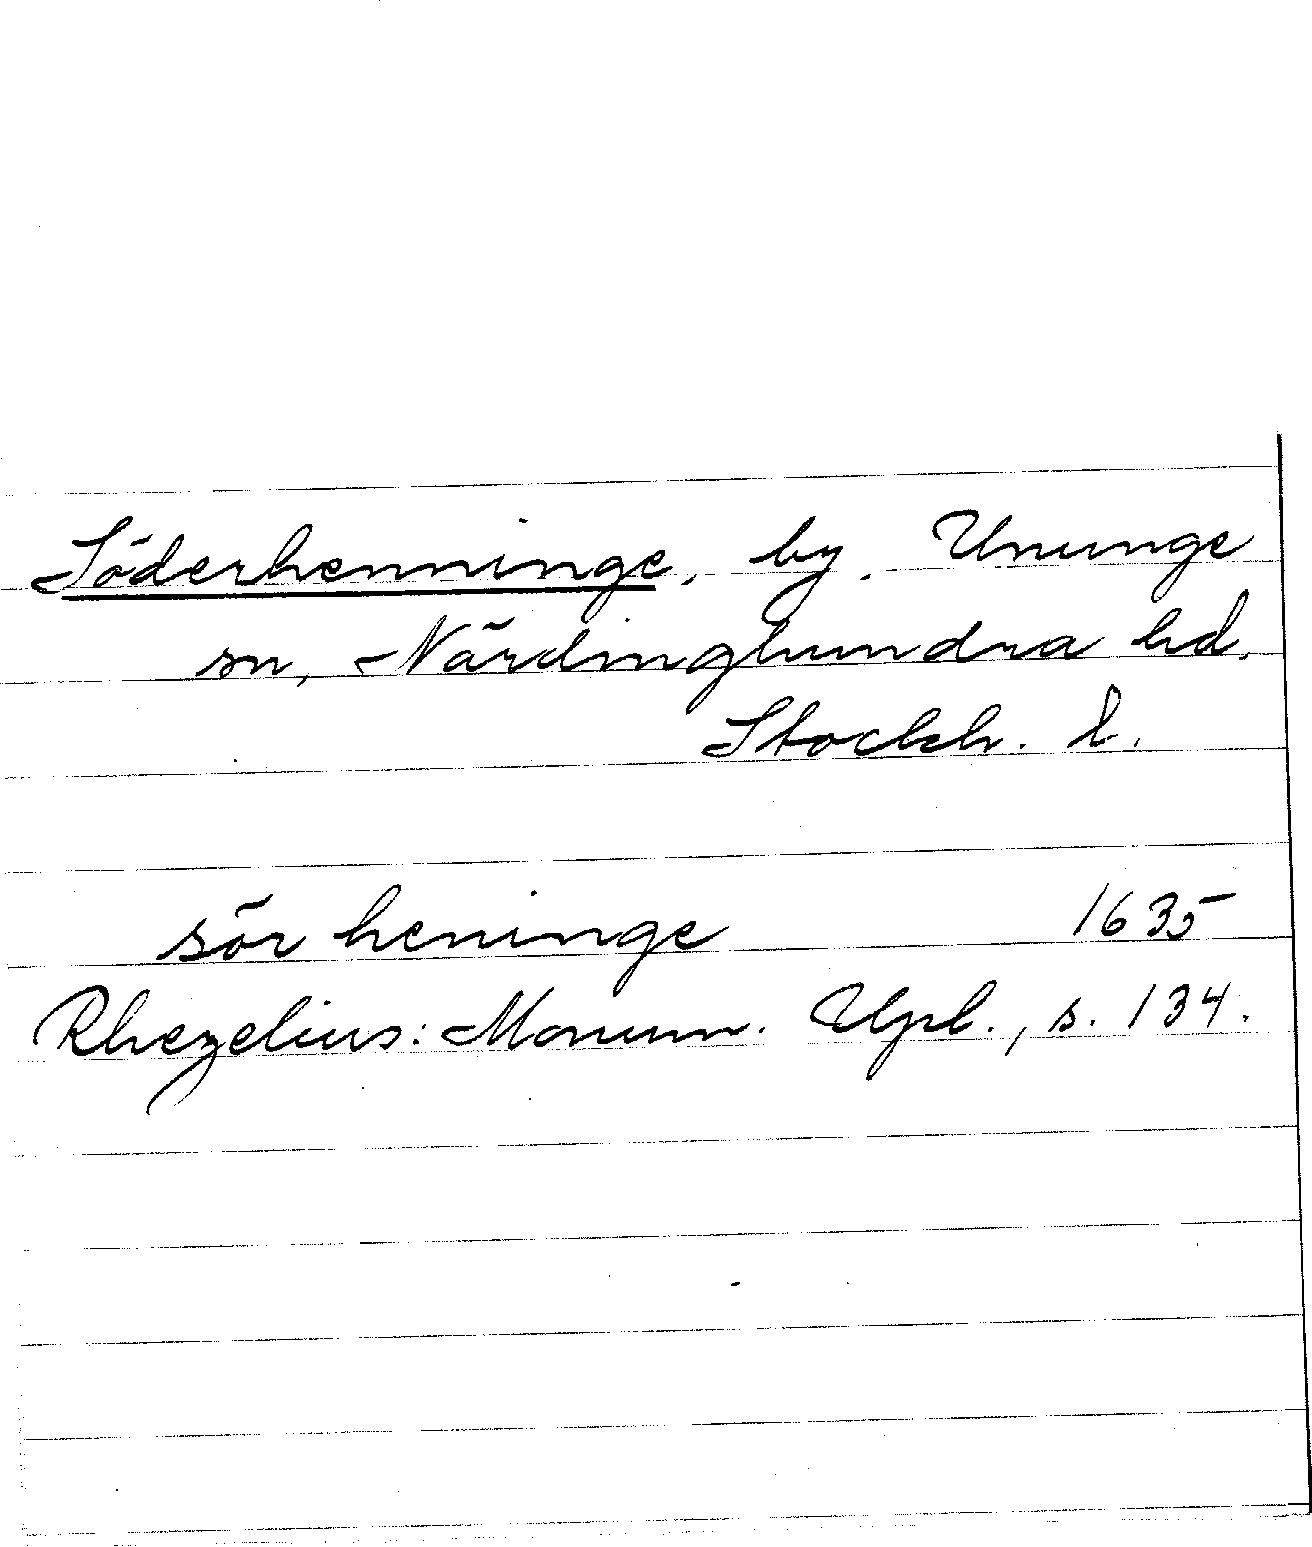 Söderhenninge, by, Ununge
sn, Närdinghundra hd.
Stockh. l.
sör heninge 1635
Rhezelius: Monum. Upl., s. 134.